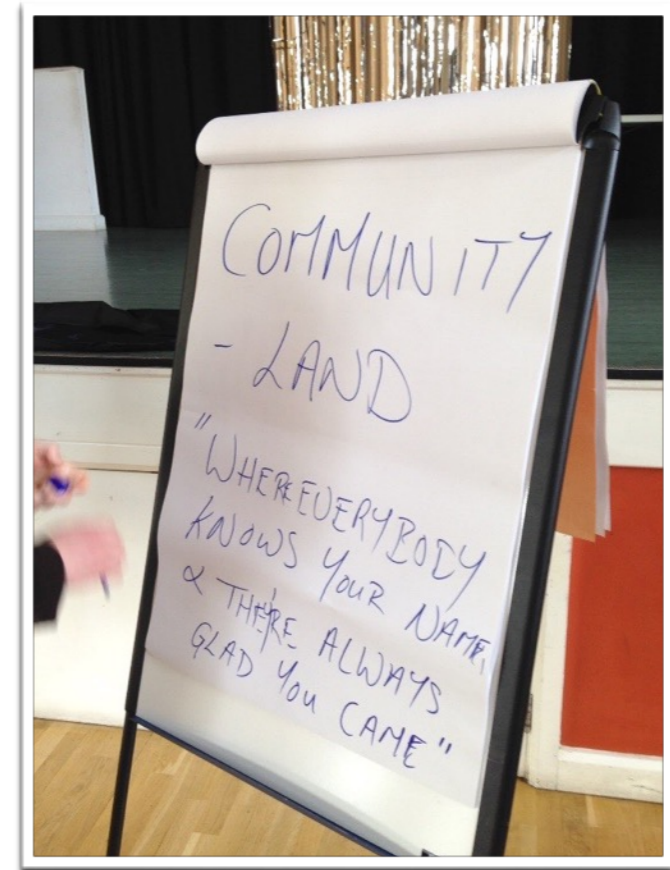 COMMUNITY
- LAND
"WHERE EVERYBODY
KNOWS YOUR NAME,
& THEY'RE ALWAYS
GLAD YOU CAME"